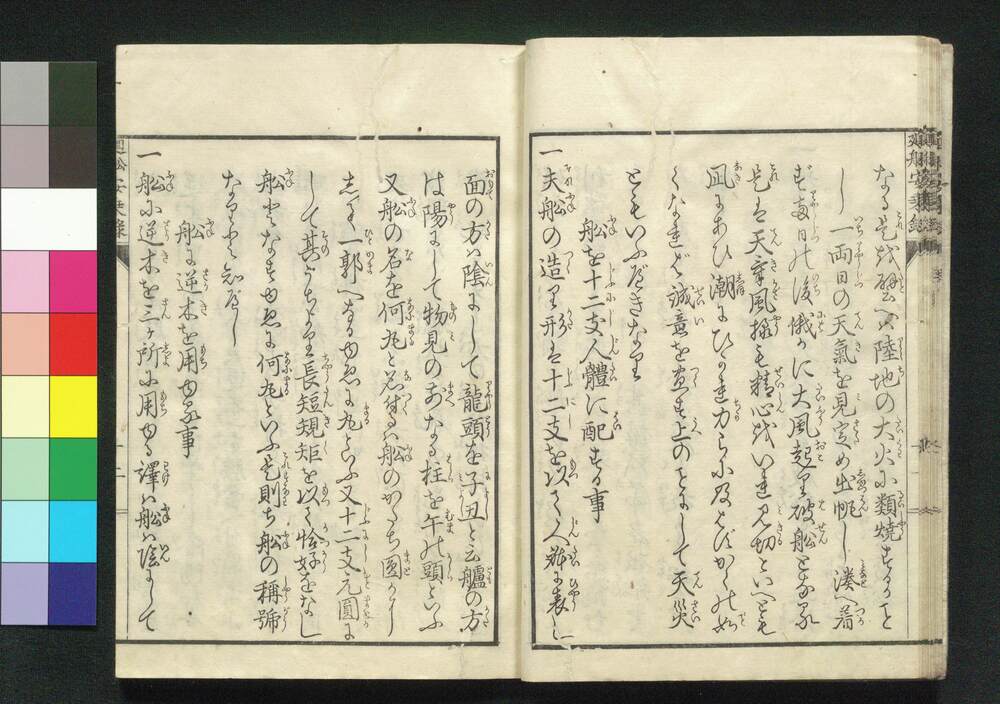 なる是を磁へバ陸地の大火に類焼するごと
し一両日の天氣を見定め出帆し湊へ着
せず翌日の後俄かに大風起り破船となる
是は天幸風様を精心を以見切といへども
凪にあひ潮にひかれ力ら及ばずかくの如
くなれど誠意を盡す上のことにして天災
ともいふべきなり
船を十二支人體に配する事
一夫船の造り形は十二支を以て人躰に表し
面の方ハ陰にして龍頭を子丑と云艫の方
は陽にして物見の前なる柱を午の頭といふ
又船の名を何丸と名付るハ船のかたち圓かに
して一郭へなるゆゑに丸と云ふ又十二支元圓に
して其うちより長短規矩を以て恰好をなし
船となすゆゑに何丸といふ是則ち船の稱號
なりと知べし
船に逆木を用ゆる事
一船に逆木を三ケ所に用ゆる譯ハ船ハ陰にして